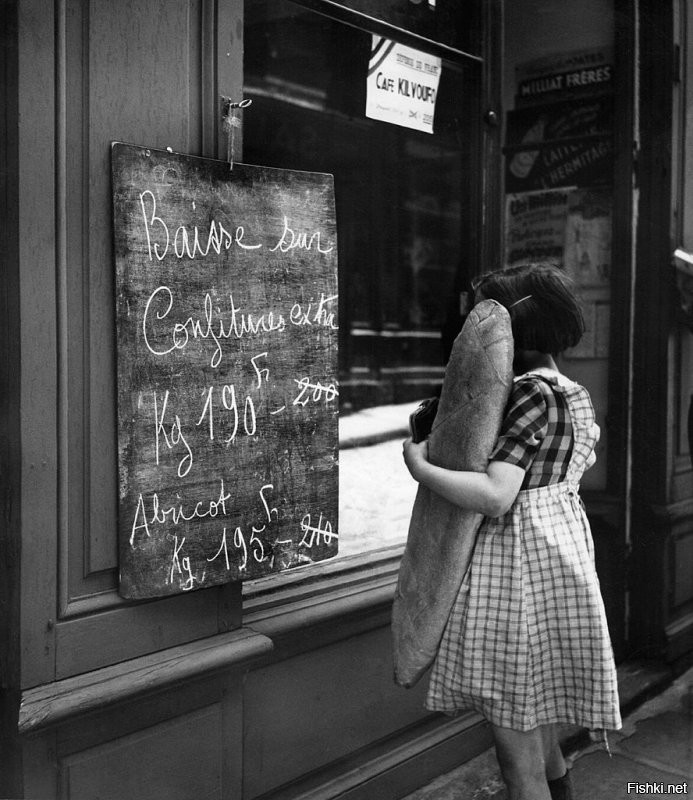 Baisse sur
Confitures extra
Kg 190 fr - 200
Abricot
Kg 195 fr - 210
CAFÉ KILVOUFO
MILLIAT FRÈRES
L'HERMITAGE
Fishki.net